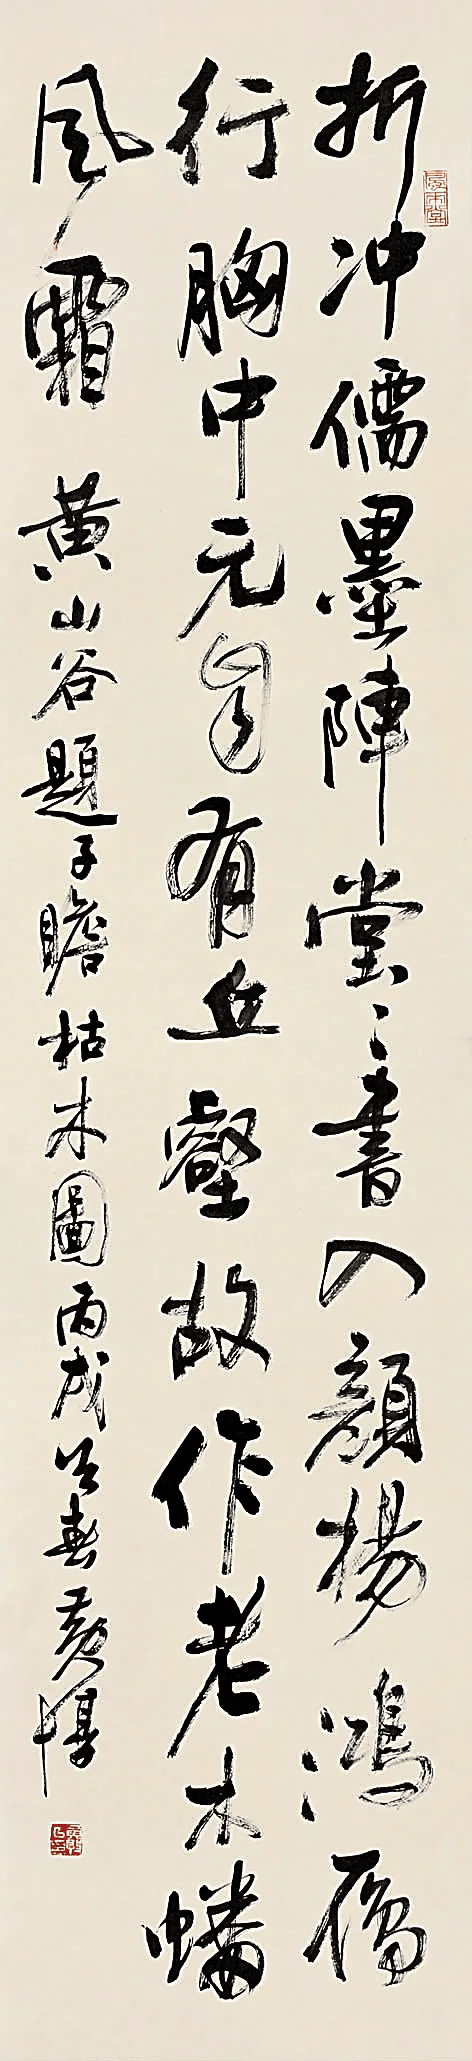 折冲儒墨陣堂〻書入顏楊鴻雁
行胸中元自有丘壑故作老木蟠
風霜 黃山谷題子瞻枯木圖丙戌春黃惇